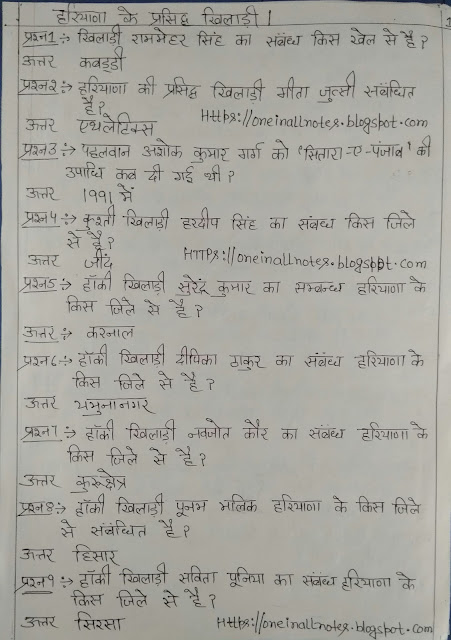 हरियाणा के प्रसिद्ध खिलाड़ी।
प्रश्न1 :-> खिलाड़ी राममेहर सिंह का संबंध किस खेल से है ?
उत्तर कबड्डी
प्रश्न2 :-> हरियाणा की प्रसिद्ध खिलाड़ी गीता जुत्सी संबंधित
है ?
उत्तर एथलेटिक्स Https://oneinallnotes.blogspot.com
प्रश्न3 :-> पहलवान अशोक कुमार गर्ग को 'सितारा-ए-पंजाब' की
उपाधि कब दी गई थी ?
उत्तर 1991 में
प्रश्न4 :-> कुश्ती खिलाड़ी हरदीप सिंह का संबंध किस जिले
से है ?
उत्तर जींद HTTPS://oneinallnotes.blogspot.com
प्रश्न5 :-> हॉकी खिलाड़ी सुरेंद्र कुमार का सम्बन्ध हरियाणा के
किस जिले से है ?
उत्तर :-> करनाल
प्रश्न6 :-> हॉकी खिलाड़ी दीपिका ठाकुर का संबंध हरियाणा के
किस जिले से है ?
उत्तर यमुनानगर
प्रश्न7 :-> हॉकी खिलाड़ी नवजोत कौर का संबंध हरियाणा के
किस जिले से है ?
उत्तर कुरुक्षेत्र
प्रश्न8 :-> हॉकी खिलाड़ी पूनम मलिक हरियाणा के किस जिले
से संबंधित है ?
उत्तर हिसार
प्रश्न9 :-> हॉकी खिलाड़ी सविता पूनिया का संबंध हरियाणा के
किस जिले से है ?
उत्तर सिरसा Https://oneinallnotes.blogspot.com